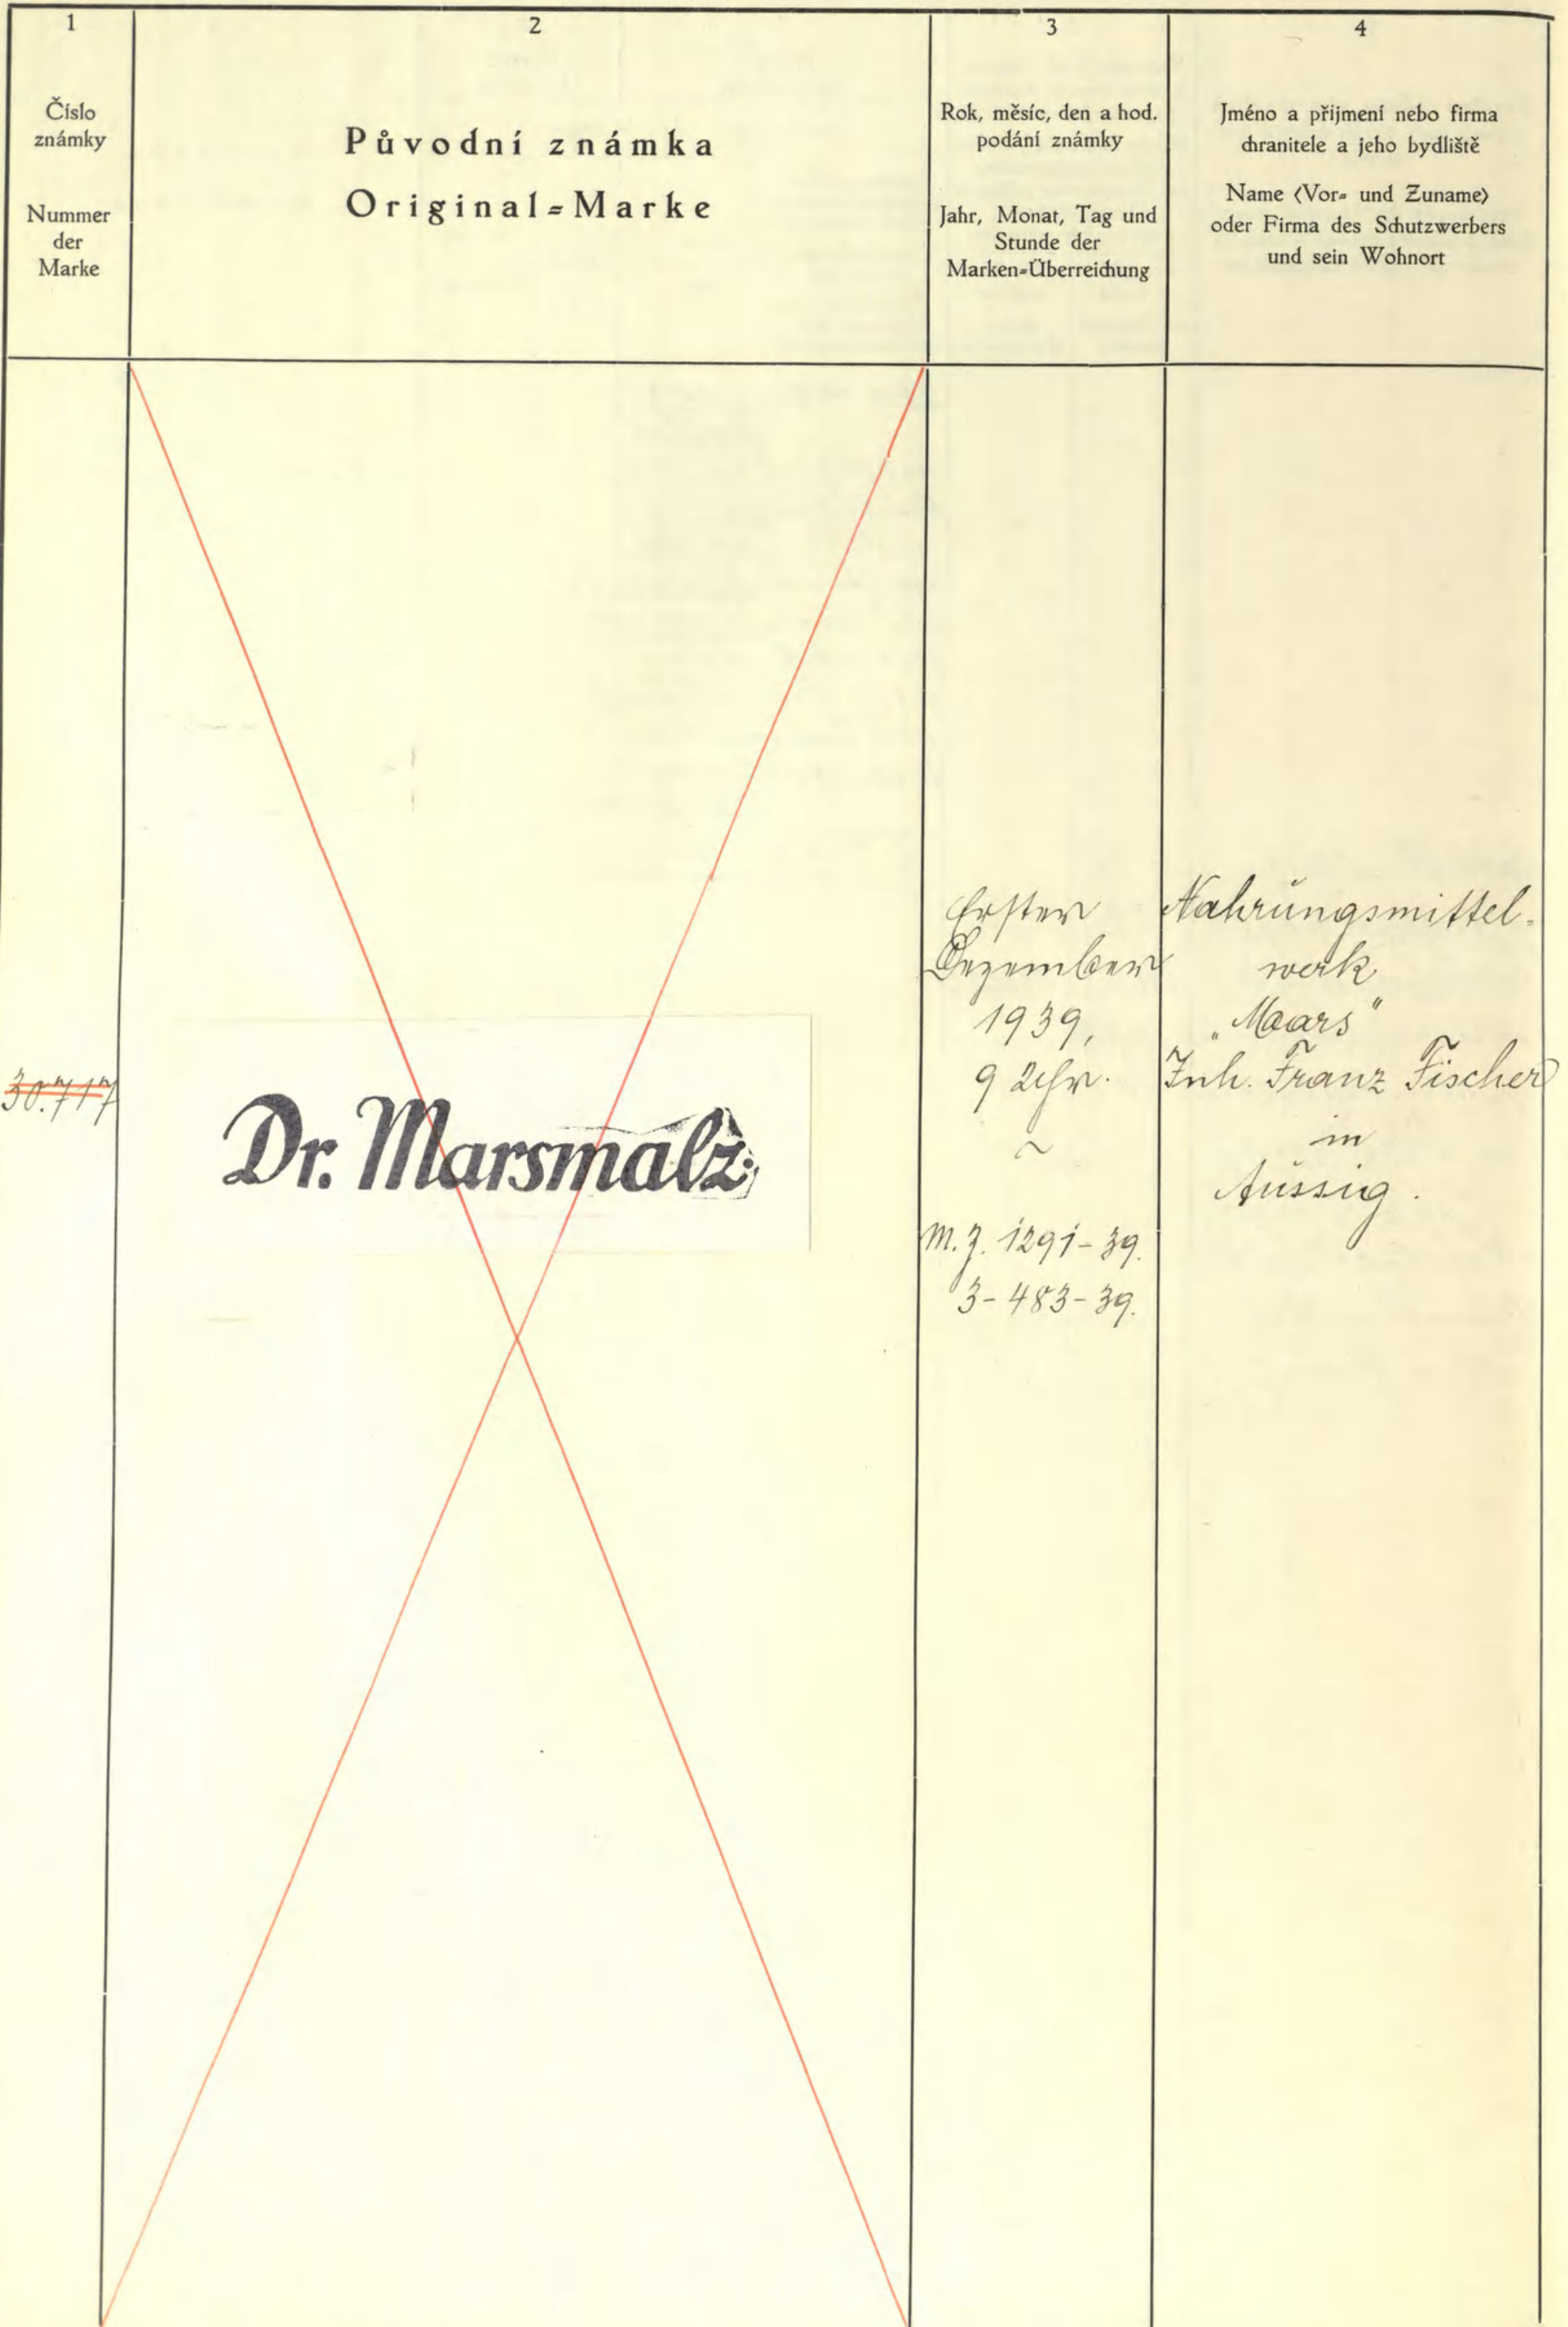 1
Číslo
známky
Nummer
der
Marke
2
Původní známka
Original=Marke
3
Rok, měsíc, den a hod.
podání známky
Jahr, Monat, Tag und
Stunde der
Marken=Überreichung
4
Jméno a příjmení nebo firma
chranitele a jeho bydliště
Name (Vor= und Zuname)
oder Firma des Schutzwerbers
und sein Wohnort
30.717
Dr. Marsmalz
Erster
Dezember
1939,
9 Uhr.
~
M. Z. 1291-39.
3-483-39.
Nahrungsmittel-
werk
„Maars"
Inh. Franz Fischer
in
Aussig.